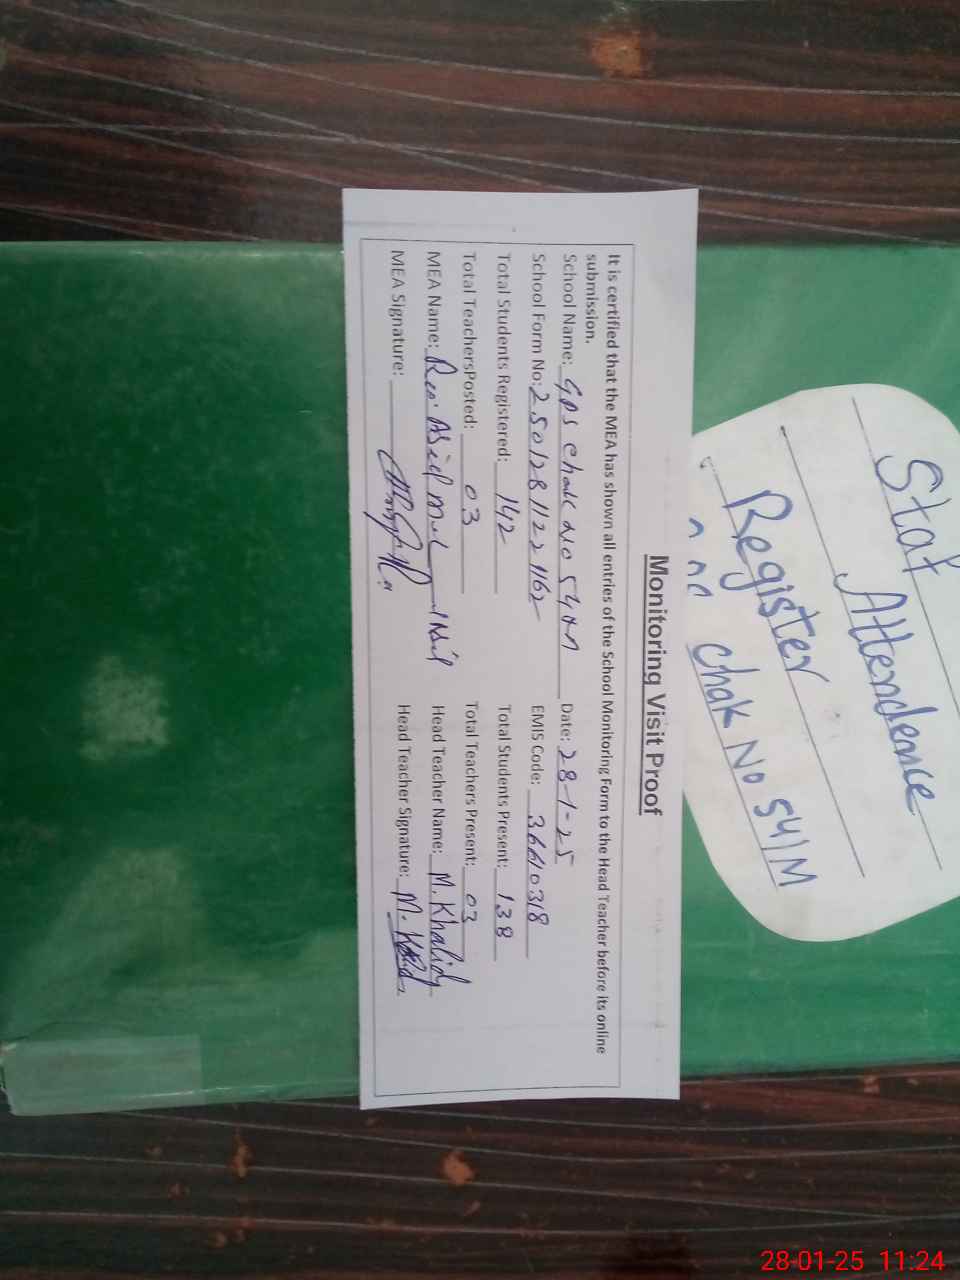 Staf Attendence
Register
Chak No 54/M
Monitoring Visit Proof
It is certified that the MEA has shown all entries of the School Monitoring Form to the Head Teacher before its online
submission.
School Name: GPS Chak No 54/M Date: 28-1-25
School Form No: 25012811221162 EMIS Code: 36610318
Total Students Registered: 142 Total Students Present: 138
Total TeachersPosted: 03 Total Teachers Present: 03
MEA Name: Head Teacher Name: M. Khalid
MEA Signature: Head Teacher Signature: M. Khalid
28-01-25 11:24